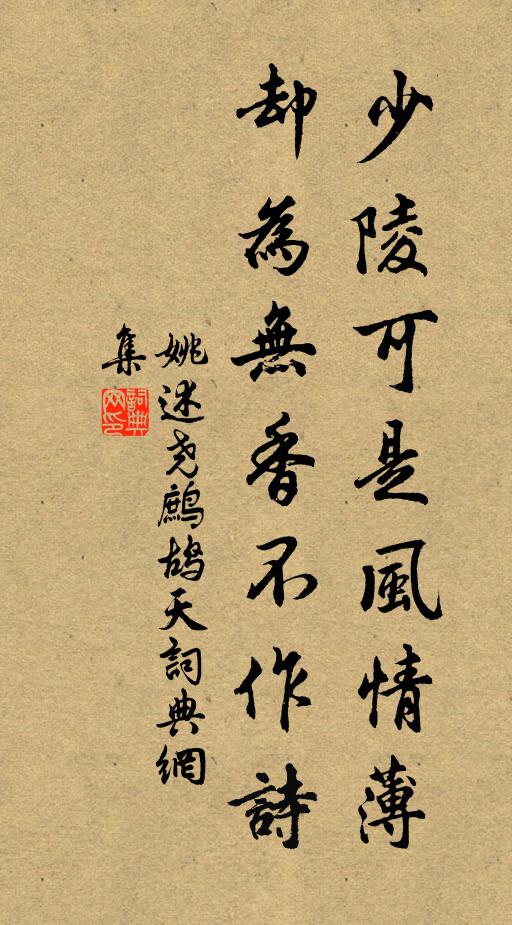 少陵可是風情薄
却為無香不作詩
姚述尧鷓鴣天詞典網
集
詞典網印